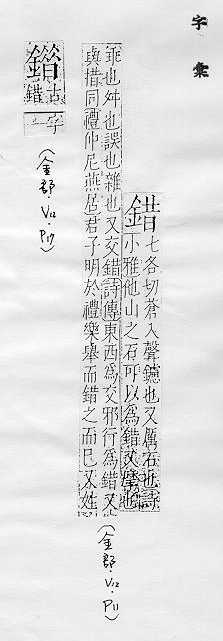 字彙
錯 七各切蒼入聲鑢也又厲石也詩
小雅他山之石可以為錯又也
乖也舛也誤也雜也又交錯詩傳東西為交邪行為錯又
與措同禮仲尼燕居君子明於禮樂舉而錯之而已又姓
(金部·V12·P11)
古錯字
(金部·V12·P17)